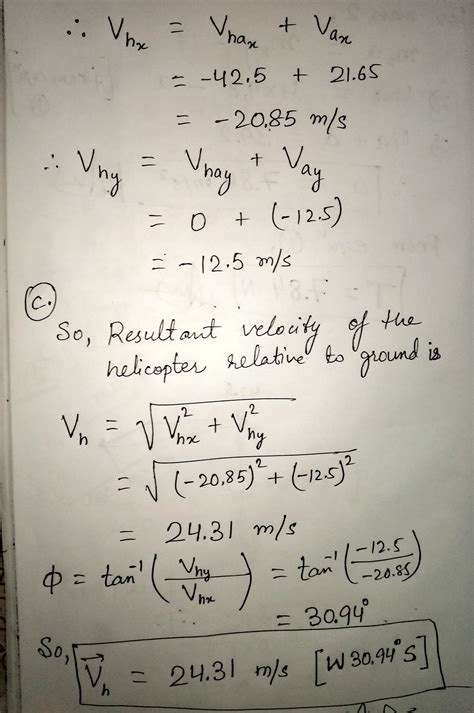 ∴ V_hx = V_hax + V_ax
= -42.5 + 21.65
= -20.85 m/s
∴ V_hy = V_hay + V_ay
= 0 + (-12.5)
= -12.5 m/s
(C.)
So, Resultant velocity of the
helicopter relative to ground is
V_h = √(V_hx² + V_hy²)
= √((-20.85)² + (-12.5)²)
= 24.31 m/s
ϕ = tan⁻¹(V_hy / V_hx) = tan⁻¹(-12.5 / -20.85)
= 30.94°
So, V⃗_h = 24.31 m/s [W 30.94° S]